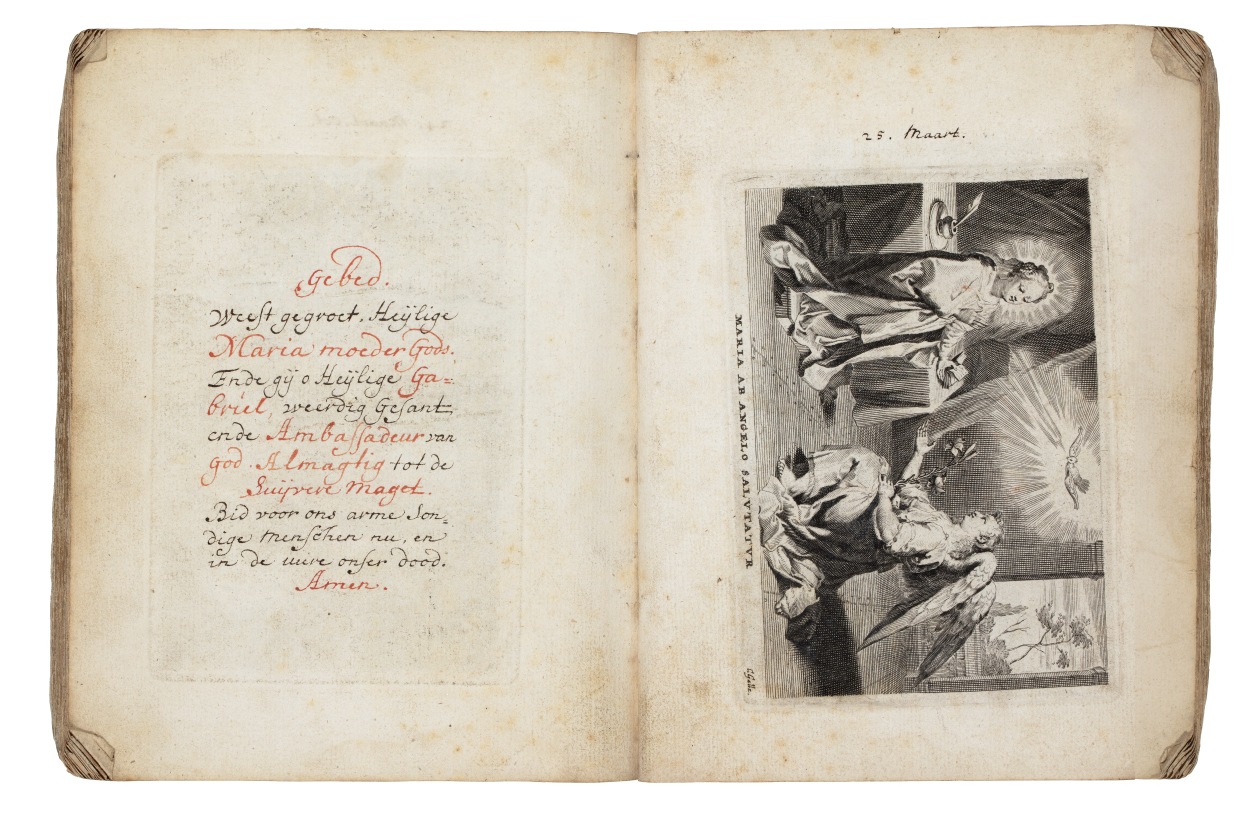 Gebed.
Weest gegroet, Heÿlige
Maria moeder Gods.
Ende gÿ o Heÿlige Ga=
briel, weerdig Gesant,
ende Ambassadeur van
God Almagtig tot de
Suijvere Maget.
Bid voor ons arme Son=
dige menschen nu, en
in de uure onser dood.
Amen.
25. Maart.
MARIA AB ANGELO SALVTATVR
C Galle.